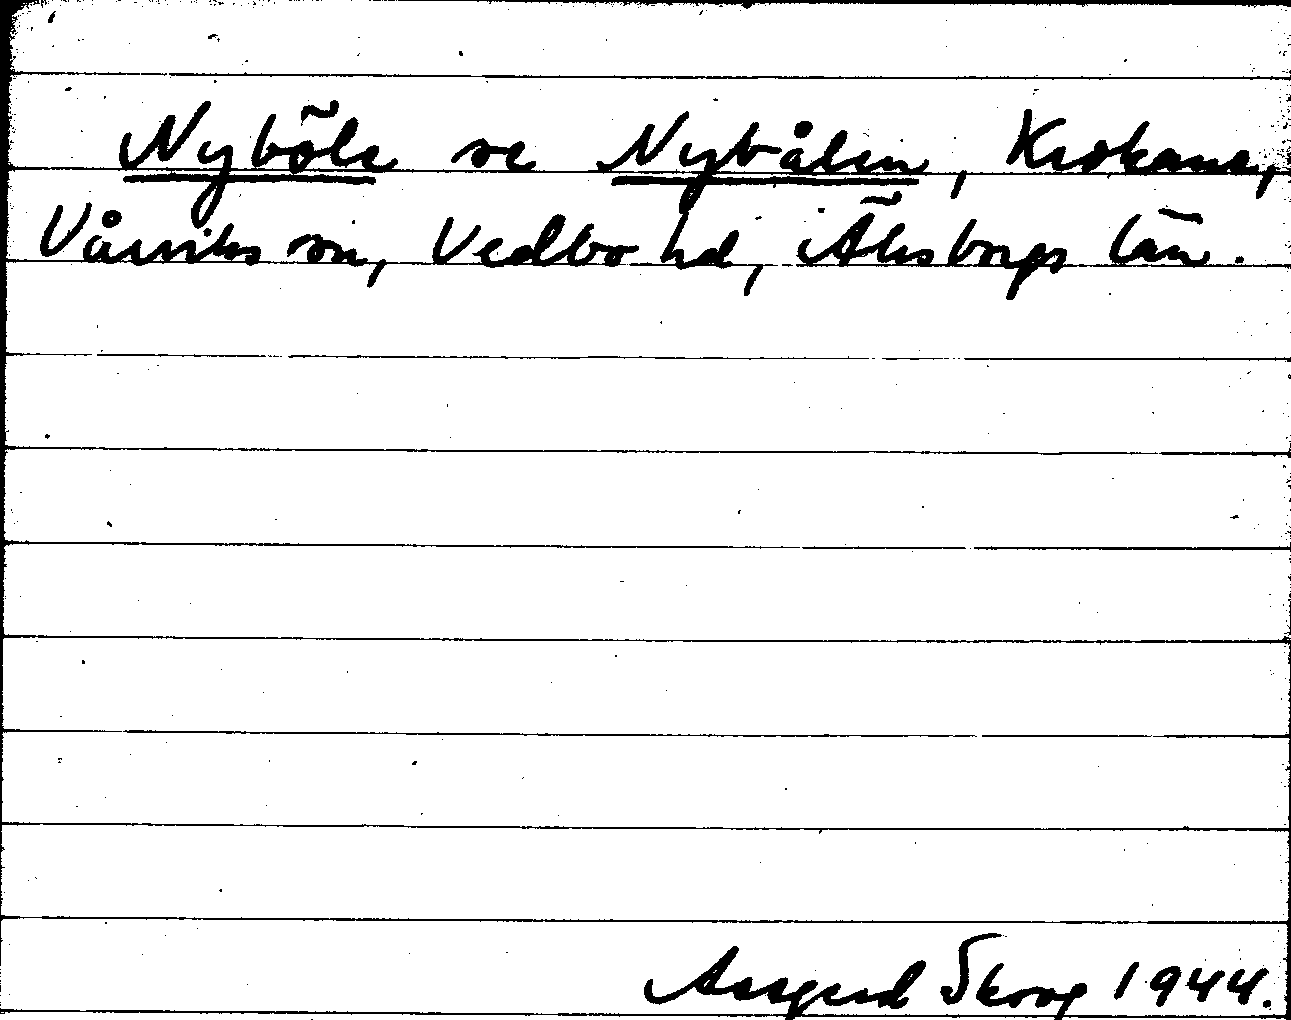 Nyböle se Nybålen, Krokane,
Vårviks sn, Vedbo hd, Älvsborgs län.
Assgerd Skrog 1944.